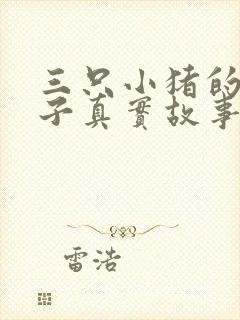 三只小猪的
子真實故事
雷浩